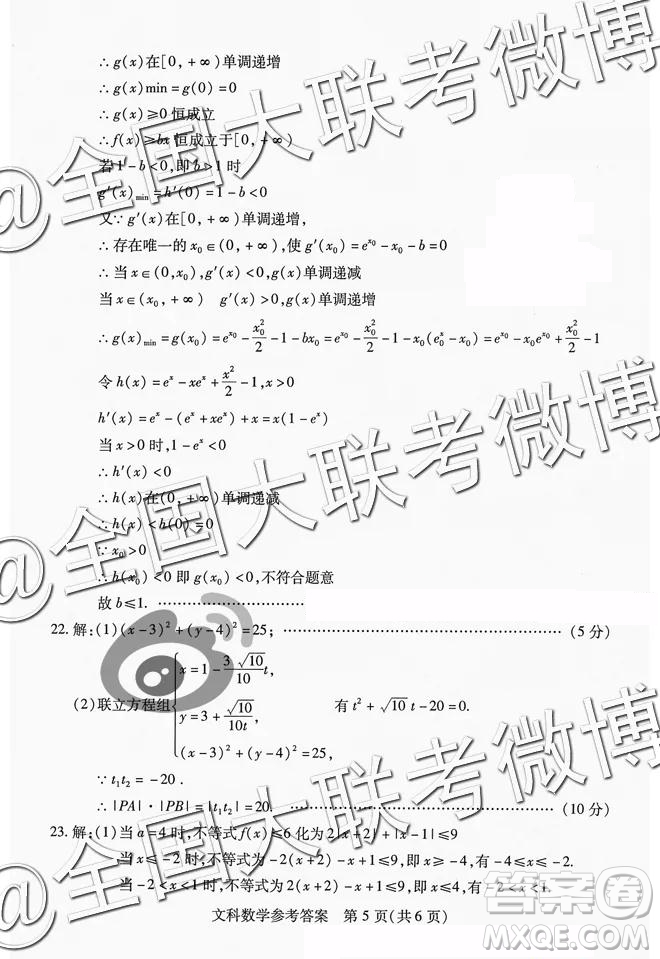 ∴g(x)在[0,+∞)单调递增
∴g(x)min=g(0)=0
∴g(x)≥0恒成立
∴f(x)≥bx恒成立于[0,+∞)
若1-b<0,即b>1时
g′(x)min=h′(0)=1-b<0
又∵g′(x)在[0,+∞)单调递增,
∴存在唯一的x₀∈(0,+∞),使g′(x₀)=e^{x₀}-x₀-b=0
∴当x∈(0,x₀),g′(x)<0,g(x)单调递减
当x∈(x₀,+∞) g′(x)>0,g(x)单调递增
∴g(x)min=g(x₀)=e^{x₀}-x₀²/2-1-bx₀=e^{x₀}-x₀²/2-1-x₀(e₀^x-x₀)=e^{x₀}+x₀²/2-1
令h(x)=e^x-xe^x+x²/2-1,x>0
h′(x)=e^x-(e^x+xe^x)+x=x(1-e^x)
当x>0时,1-e^x<0
∴h′(x)<0
∴h(x)在(0,+∞)单调递减
∴h(x)<h(0)=0
∵x₀>0
∴h(x₀)<0即g(x₀)<0,不符合题意
故b≤1. ……………………
22.解:(1)(x-3)²+(y-4)²=25; ……………………………………………… (5分)
(2)联立方程组{x=1-3√10/10 t,
y=3+√10/10t,
(x-3)²+(y-4)²=25,
有t²+√10 t-20=0.
∵t₁t₂=-20.
∴|PA|·|PB|=|t₁t₂|=20. ……………………………………………… (10分)
23.解:(1)当a=4时,不等式f(x)≤6化为2|x+2|+|x-1|≤9
当x≤-2时,不等式为-2(x+2)-x+1≤9,即x≥-4,有-4≤x≤-2.
当-2<x<1时,不等式为2(x+2)-x+1≤9,即x≤4,有-2<x<1.
文科数学参考答案 第5页(共6页)
@全国大联考微博
@全国大联考微博
答案卷
MXQE.COM